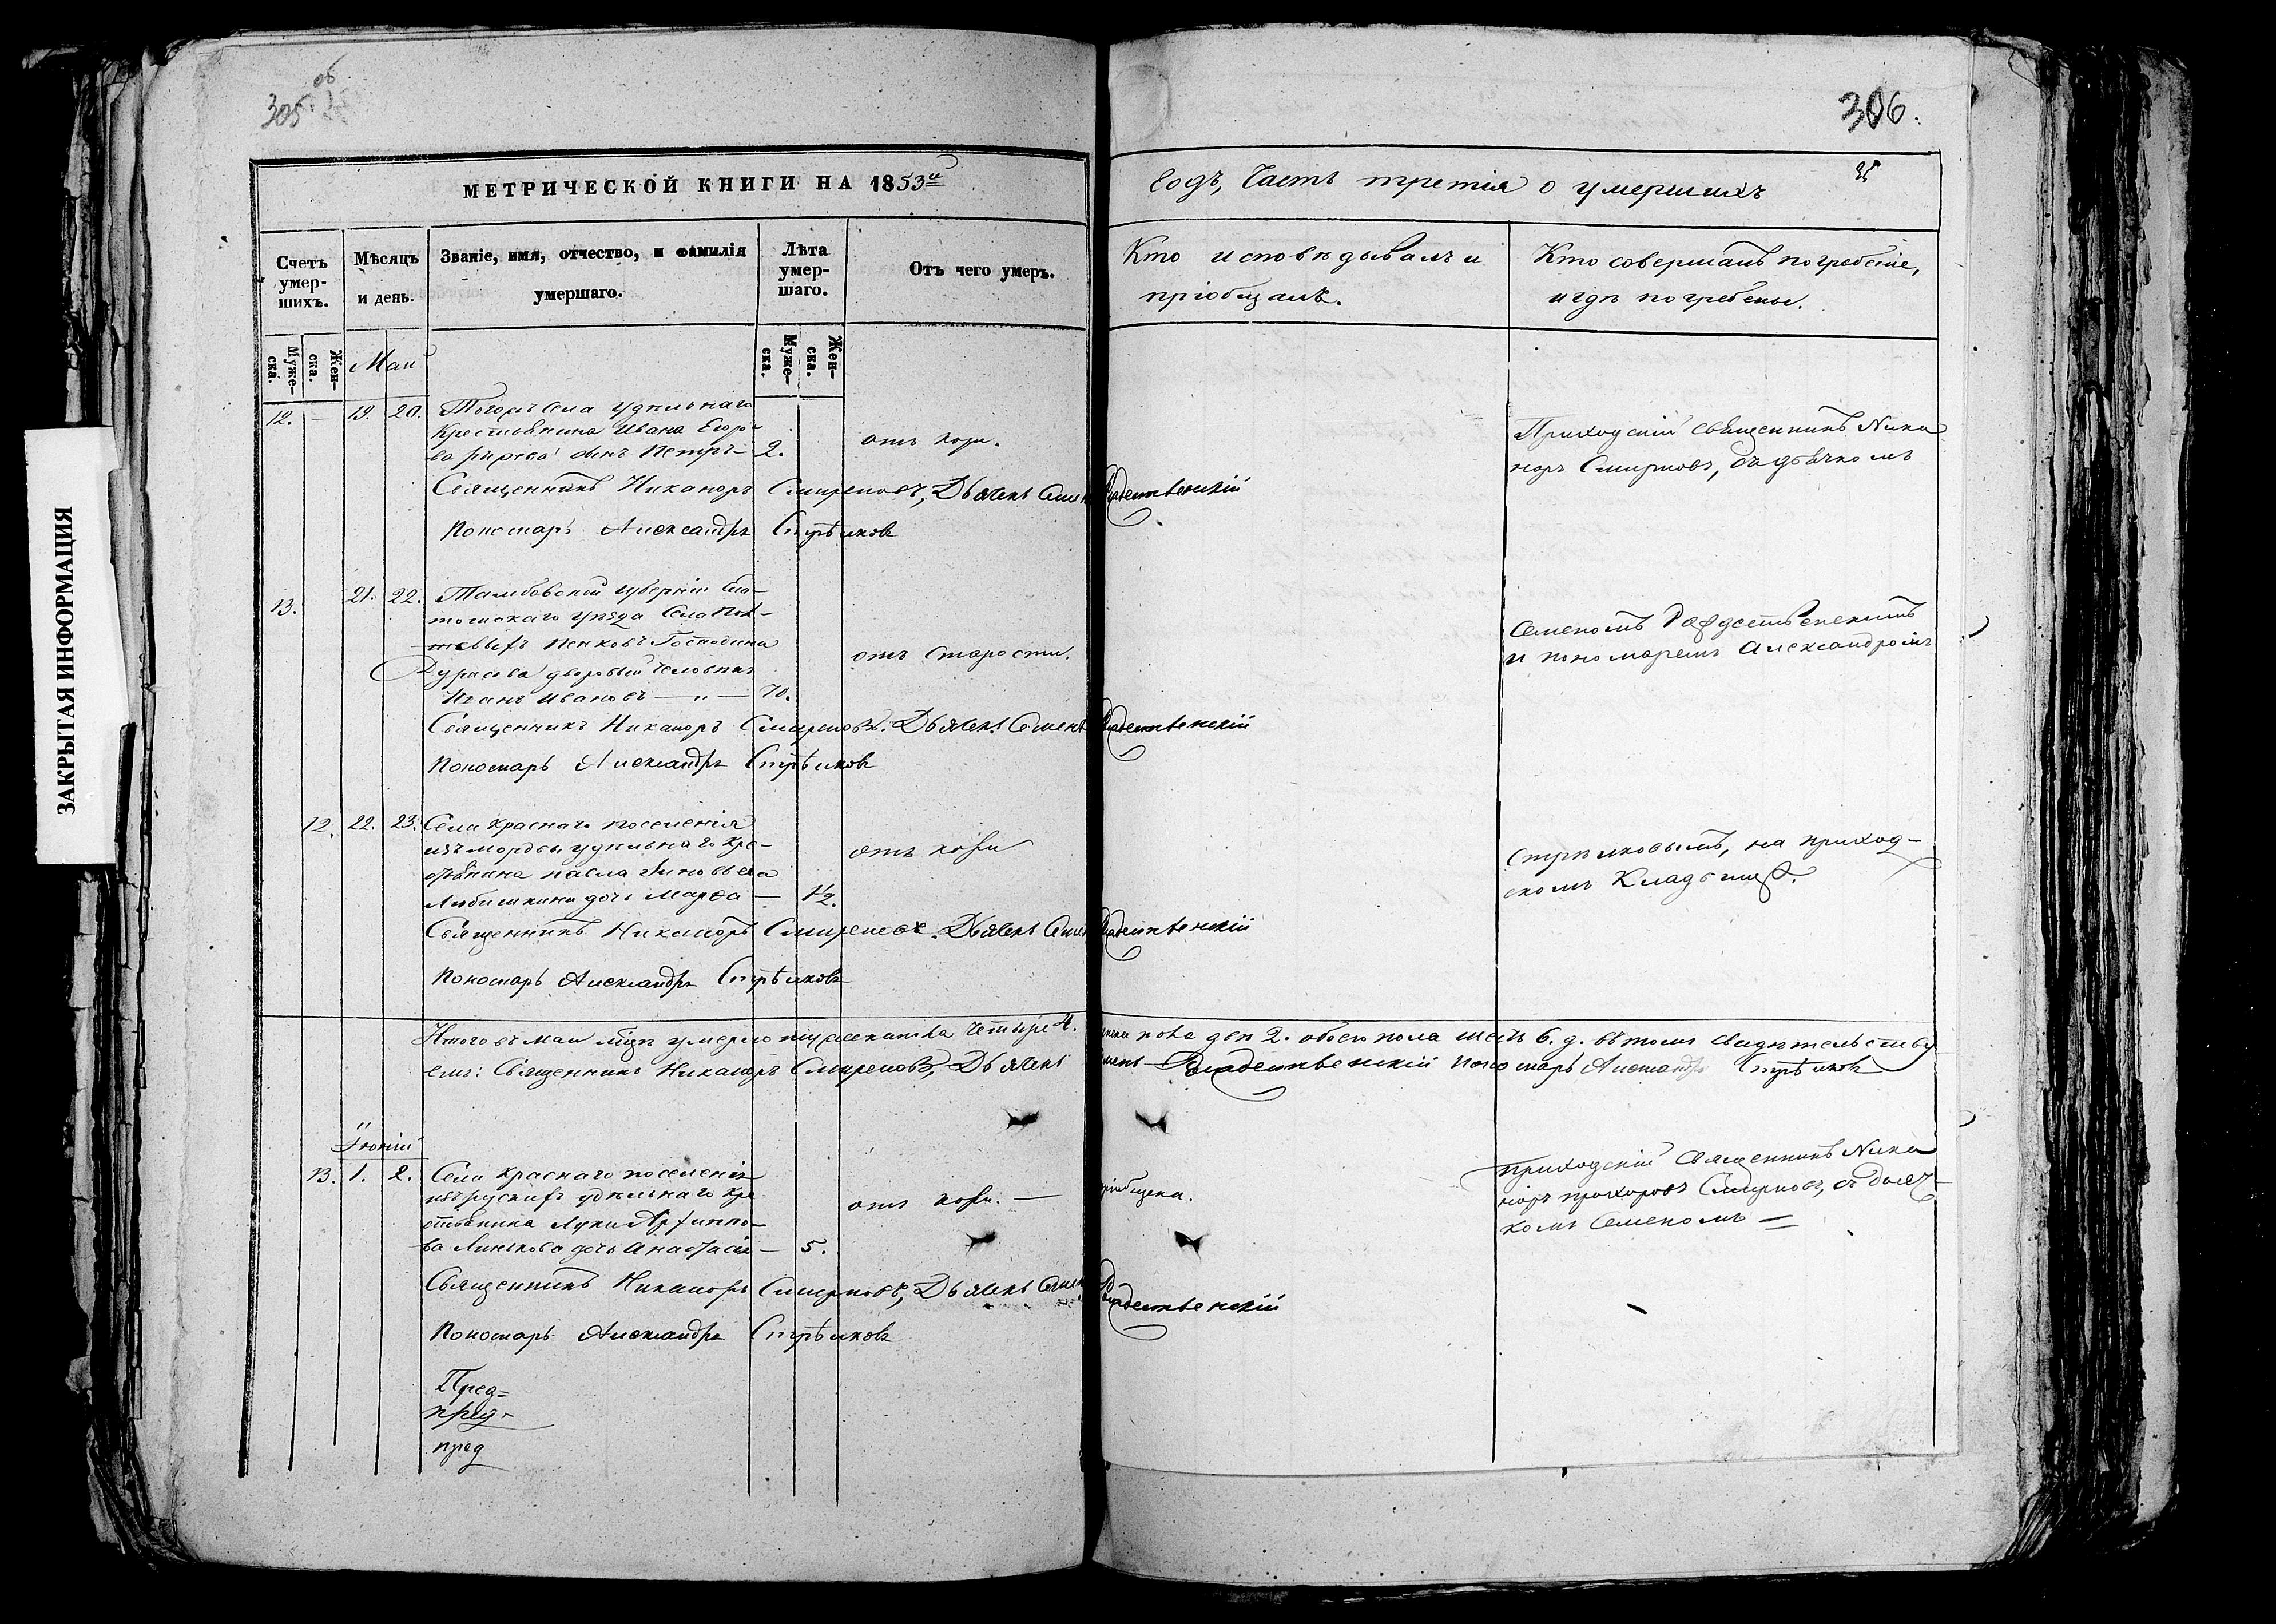 305 об
306.
МЕТРИЧЕСКОЙ КНИГИ НА 1853й
годъ, Часть третія о умершихъ
35
Счетъ умер-
шихъ.
Мѣсяцъ
и день.
Званіе, имя, отчество, и фамилія
умершаго.
Лѣта
умер-
шаго.
Отъ чего умеръ.
Кто исповѣдывалъ и
пріобщалъ.
Кто совершалъ погребеніе,
и гдѣ погребены.
Муже-
ска.
Жен-
ска.
Май
Муже-
ска.
Жен-
ска.
12. — 19. 20. Тогожъ села удѣльнаго
крестьянина Ивана Егоро-
ва сынъ Петръ — 2. отъ кори.
Приходскій священникъНика
норъ Смирновъ, съ дьячкомъ
Священникъ Никаноръ Смирновъ, Дьячекъ Семенъ Рождественскій
Пономарь Александръ Стрѣлковъ
13. 21. 22. Тамбовской губерніи Спа-
тскаго уѣзда Села
Пенковъ Господина
Дурасова дворовый человѣкъ
Иванъ Ивановъ — " — 70. отъ старости.
Семеномъ Рождественскимъ
и пономаремъ Александромъ
Священникъ Никаноръ Смирновъ. Дьячекъ Семенъ Рождественскій
Пономарь Александръ Стрѣлковъ
12. 22. 23. Села Краснаго поселенія
изъ мордвы удѣльнаго кре-
стьянина Павла Зиновьева
Любишкина дочь Марфа — 1/2. отъ кори
Стрѣлковымъ, на приход-
скомъ Кладбищѣ.
Священникъ Никаноръ Смирновъ. Дьячекъ Семенъ Рождественскій
Пономарь Александръ Стрѣлковъ
Итого въ маи мцѣ умерло мужеска четыре 4. женска пола двѣ 2. обоего пола шесть 6. д. въ томъ свидѣтельству
емъ: Священникъ Никаноръ Смирновъ, Дьячекъ Семенъ Рождественскій Пономарь Александръ Стрѣлковъ
Іюній
13. 1. 2. Села Краснаго поселенія
изъ рускихъ удѣльнаго кре-
стьянина Луки Архиппо-
ва Линькова дочь Анастасія — 5. отъ кори. — пріобщена.
Приходскій Священникъ Ника
норъ Прохоровъ Смирновъ, съ дьяч-
комъ Семеномъ —
Священникъ Никаноръ Смирновъ, Дьячекъ Семенъ Рождественскій
Пономарь Александръ Стрѣлковъ
Пред=
пред-
пред
ЗАКРЫТАЯ ИНФОРМАЦИЯ